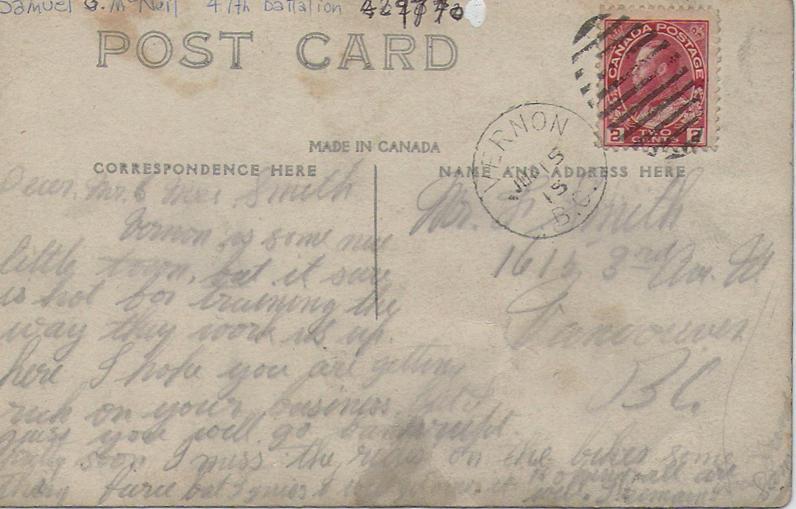 Samuel G. McNeil 47th Battalion
POST CARD
CANADA POSTAGE
2 TWO CENTS 2
VERNON
15
15
B.C.
MADE IN CANADA
CORRESPONDENCE HERE
NAME AND ADDRESS HERE
Dear Mr. & Mrs Smith
Vernon is some nice
little town, but it sure
is hot for training the
way they work us up
here I hope you are getting
rich on your business but I
guess you will go bankrupt
soon I miss the rides on the bikes some
thing but I guess
Mr. Smith
3rd Av. W
Vancouver
BC